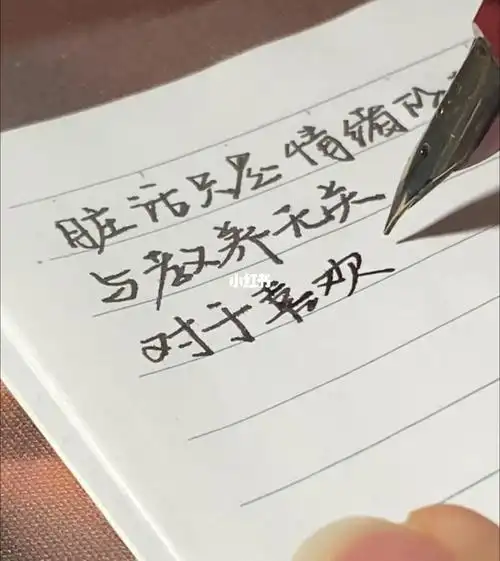 脏话只 情绪阶
与教养无关
小红书
对于喜欢